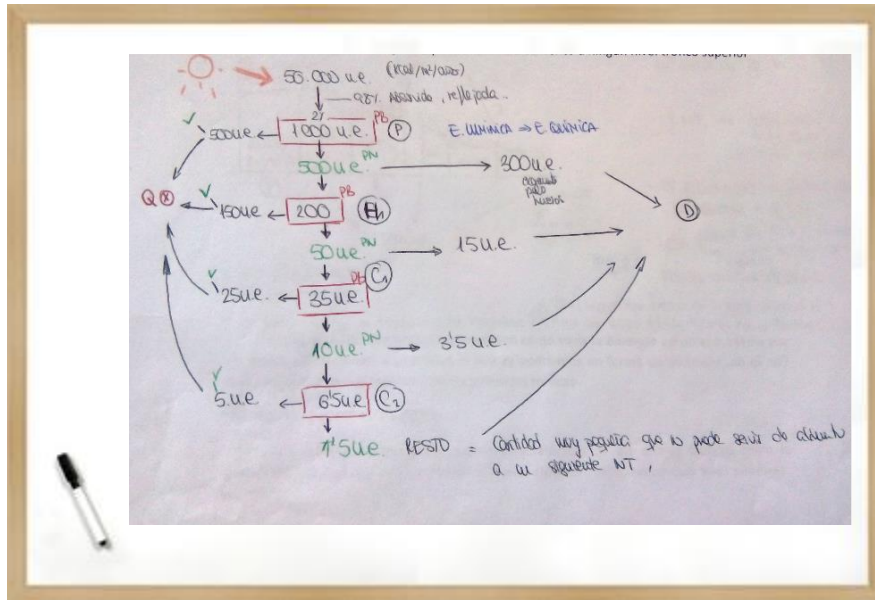 ningún nivel trófico superior
50.000 u.e. (Kcal/m²/año)
98% Absorbido, reflejada..
2%
500ue ← 1000 u.e. PB P E. LUMINICA ⇒ E. QUÍMICA
500ue PN → 300u.e.
para
huesos
Q
150ue ← 200 PB H1 D
50ue PN → 15u.e.
25ue. ← 35ue. PB C1
10ue. PN → 3'5 ue.
5ue ← 6'5ue C2
1'5ue. RESTO = Cantidad muy pequeña que no puede servir de alimento
a un siguiente NT,